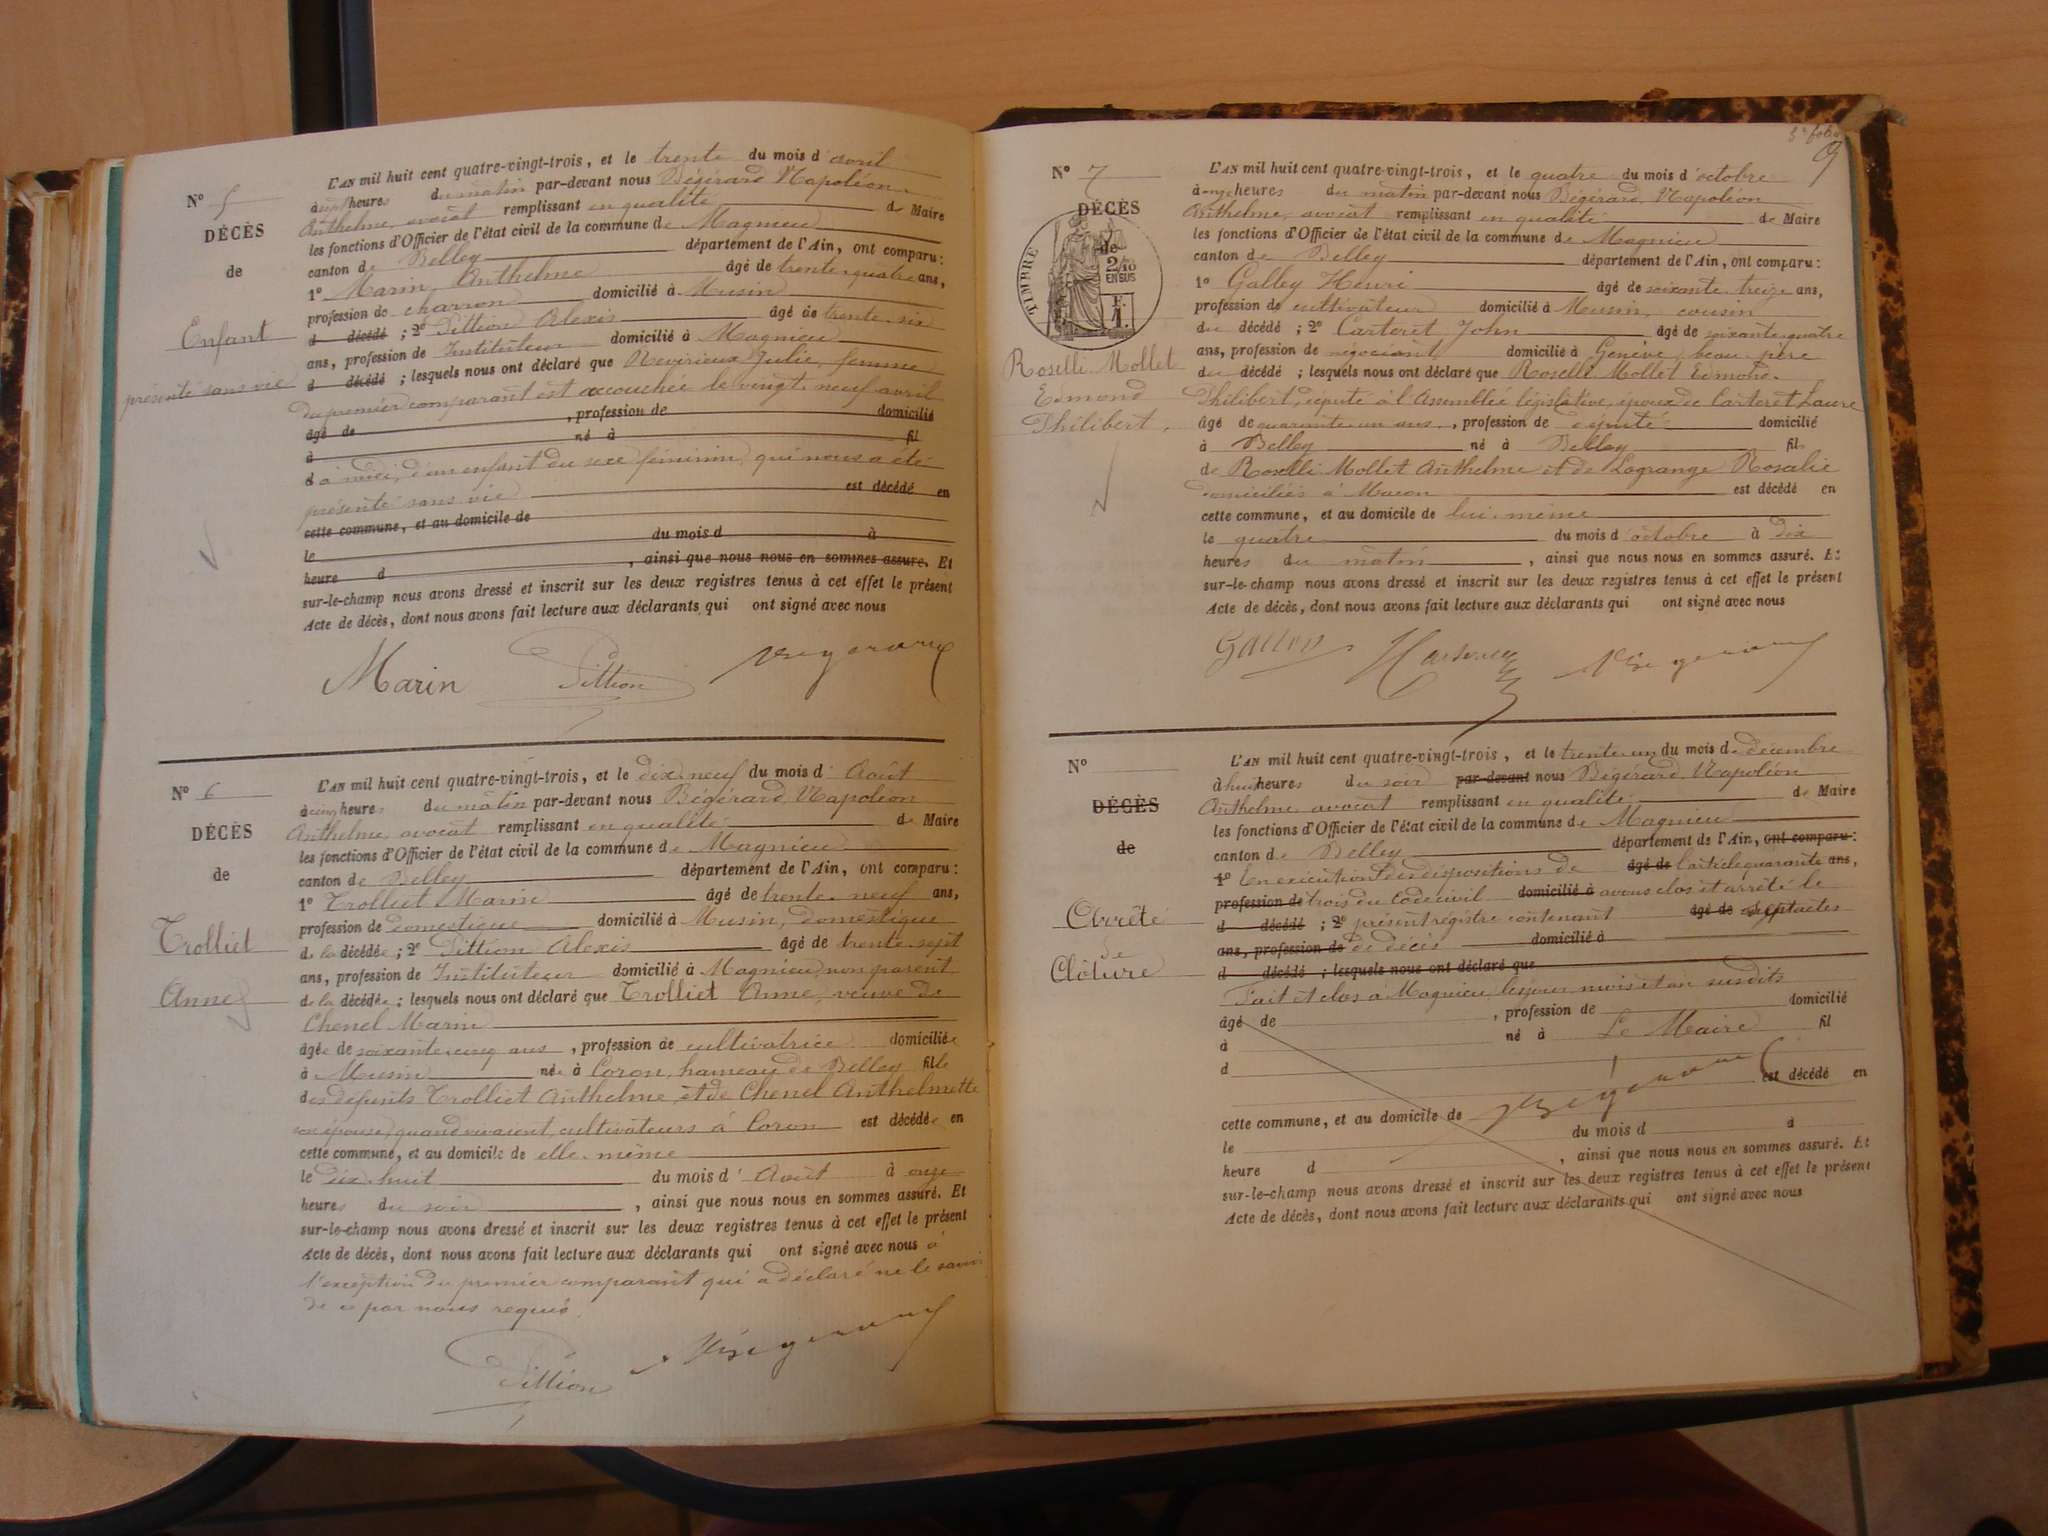 N° 5
DÉCÈS
de
Enfant
présenté sans vie
L'AN mil huit cent quatre-vingt-trois, et le trente du mois d'avril
à neuf heures du matin par-devant nous Bégérard Napoléon
Anthelme, avocat remplissant en qualité de Maire
les fonctions d'Officier de l'état civil de la commune de Magnieu
canton de Belley département de l'Ain, ont comparu :
1° Marin Anthelme âgé de trente-quatre ans,
profession de charron domicilié à Musin
d décédé ; 2° Pittion Alexis âgé de trente-six
ans, profession de Instituteur domicilié à Magnieu
d décédé ; lesquels nous ont déclaré que Julie, femme
du premier comparant est accouchée le vingt-neuf avril
âgé de , profession de domicilié
à né à fil
d à midi, d'un enfant du sexe féminin, qui nous a été
présenté sans vie est décédé en
cette commune, et au domicile de
le du mois d à
heure d , ainsi que nous nous en sommes assuré. Et
sur-le-champ nous avons dressé et inscrit sur les deux registres tenus à cet effet le présent
Acte de décès, dont nous avons fait lecture aux déclarants qui ont signé avec nous
Marin Pittion Bégérard
N° 6
DÉCÈS
de
Trolliet
Anne
L'AN mil huit cent quatre-vingt-trois, et le dix-neuf du mois d'Août
à cinq heures du matin par-devant nous Bégérard Napoléon
Anthelme, avocat remplissant en qualité de Maire
les fonctions d'Officier de l'état civil de la commune de Magnieu
canton de Belley département de l'Ain, ont comparu :
1° Trolliet Marin âgé de trente-neuf ans,
profession de domestique domicilié à Musin, domestique
de la décédée ; 2° Pittion Alexis âgé de trente-sept
ans, profession de Instituteur domicilié à Magnieu, non parent
de la décédée ; lesquels nous ont déclaré que Trolliet Anne, veuve de
Chenel Marin
âgée de soixante-cinq ans, profession de cultivatrice domiciliée
à Musin née à Coron, hameau de Belley fille
des défunts Trolliet Anthelme, et de Chenel Anthelmette
son épouse, quand vivaient, cultivateurs à Coron est décédée en
cette commune, et au domicile de elle-même
le dix-huit du mois d'Août à onze
heures du soir , ainsi que nous nous en sommes assuré. Et
sur-le-champ nous avons dressé et inscrit sur les deux registres tenus à cet effet le présent
Acte de décès, dont nous avons fait lecture aux déclarants qui ont signé avec nous à
l'exception du premier comparant qui a déclaré ne le savoir
de ce par nous requis.
Pittion Bégérard
5e folio
9
N° 7
DÉCÈS
de
TIMBRE
2/10
EN SUS
F.
1.
Roselli-Mollet
Edmond
Philibert,
L'AN mil huit cent quatre-vingt-trois, et le quatre du mois d'octobre
à onze heures du matin par-devant nous Bégérard, Napoléon
Anthelme, avocat remplissant en qualité de Maire
les fonctions d'Officier de l'état civil de la commune de Magnieu
canton de Belley département de l'Ain, ont comparu :
1° Galley Henri âgé de soixante-treize ans,
profession de cultivateur domicilié à Musin, cousin
du décédé ; 2° Carteret John âgé de soixante-quatre
ans, profession de négociant domicilié à Genève, beau-père
du décédé ; lesquels nous ont déclaré que Roselli-Mollet Edmond-
Philibert, député à l'Assemblée législative, époux de Carteret Laure
âgé de quarante-un ans, profession de député domicilié
à Belley né à Belley fils
de Roselli-Mollet Anthelme et de Lagrange Rosalie
domiciliés à Macon est décédé en
cette commune, et au domicile de lui-même
le quatre du mois d'octobre à dix
heures du matin , ainsi que nous nous en sommes assuré. Et
sur-le-champ nous avons dressé et inscrit sur les deux registres tenus à cet effet le présent
Acte de décès, dont nous avons fait lecture aux déclarants qui ont signé avec nous
Bégérard
N°
DÉCÈS
de
Arrêté
de
Clôture
L'AN mil huit cent quatre-vingt-trois, et le trente-un du mois de décembre
à huit heures du soir par-devant nous Bégérard, Napoléon
Anthelme, avocat remplissant en qualité de Maire
les fonctions d'Officier de l'état civil de la commune de Magnieu
canton de Belley département de l'Ain, ont comparu :
1° En exécution des dispositions de âgé de l'article quarante ans,
profession de trois du Code civil domicilié à avons clos et arrêté le
d décédé ; 2° présent registre contenant âgé de sept actes
ans, profession de de décès domicilié à
d décédé ; lesquels nous ont déclaré que
Fait et clos à Magnieu, les jour, mois et an susdits
âgé de , profession de domicilié
à né à Le Maire fil
d
Bégérard est décédé en
cette commune, et au domicile de
le du mois d à
heure d , ainsi que nous nous en sommes assuré. Et
sur-le-champ nous avons dressé et inscrit sur les deux registres tenus à cet effet le présent
Acte de décès, dont nous avons fait lecture aux déclarants qui ont signé avec nous